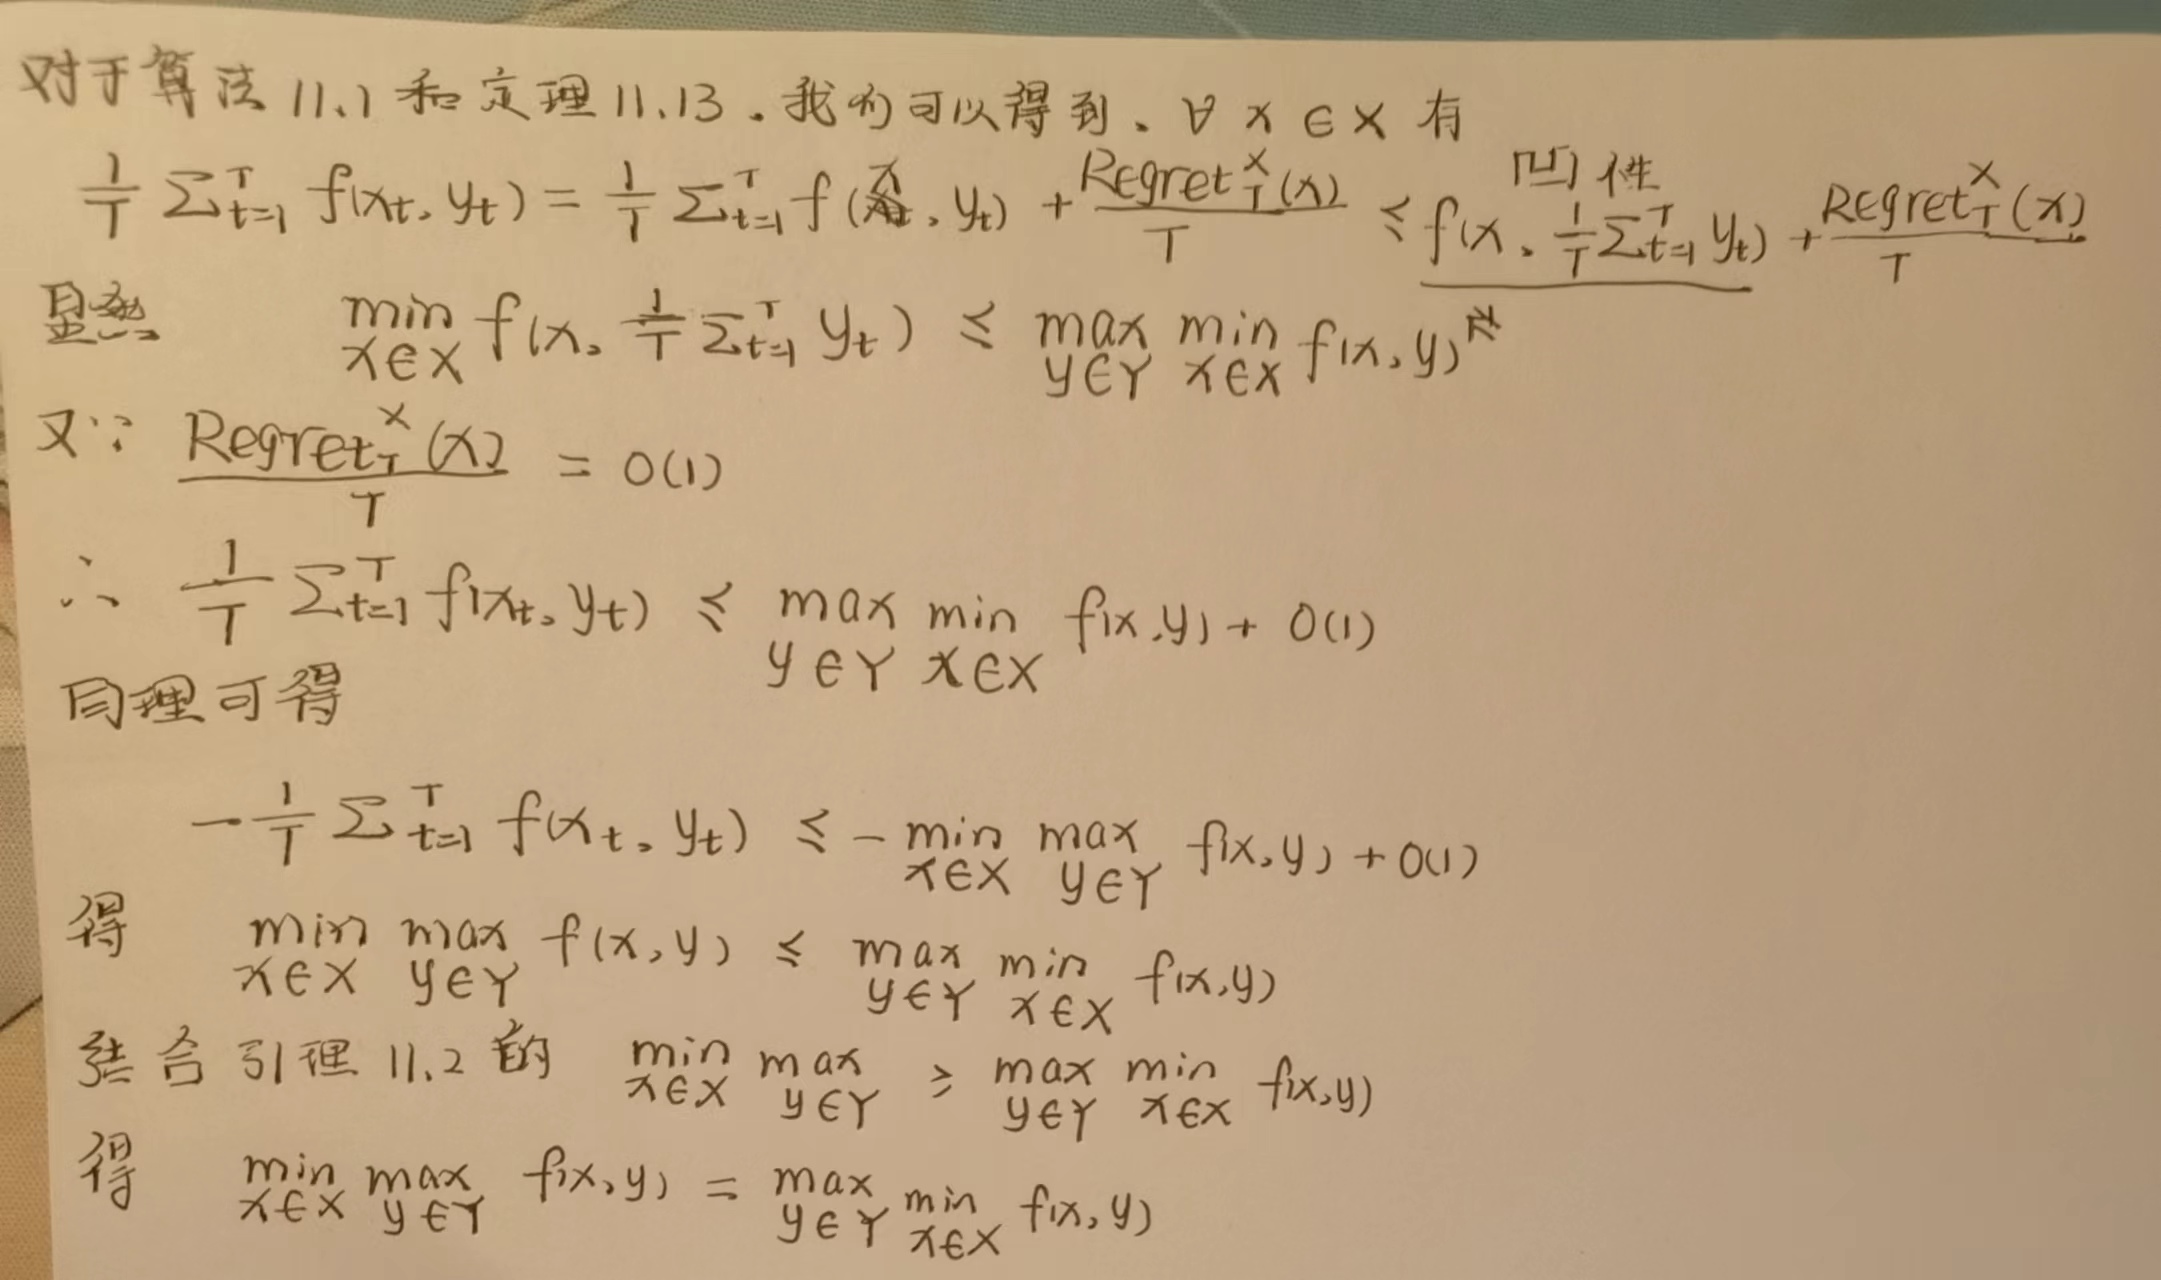 对于算法 11.1 和定理 11.13. 我们可以得到. ∀ x ∈ X 有
1/T Σ_{t=1}^T f(x_t, y_t) = 1/T Σ_{t=1}^T f(x, y_t) + Regret_T^X(x)/T ≤ f(x, 1/T Σ_{t=1}^T y_t) + Regret_T^X(x)/T
凹性
显然 min_{x∈X} f(x, 1/T Σ_{t=1}^T y_t) ≤ max_{y∈Y} min_{x∈X} f(x, y)
又∵ Regret_T^X(x)/T = o(1)
∴ 1/T Σ_{t=1}^T f(x_t, y_t) ≤ max_{y∈Y} min_{x∈X} f(x, y) + o(1)
同理可得
-1/T Σ_{t=1}^T f(x_t, y_t) ≤ - min_{x∈X} max_{y∈Y} f(x, y) + o(1)
得 min_{x∈X} max_{y∈Y} f(x, y) ≤ max_{y∈Y} min_{x∈X} f(x, y)
结合引理 11.2 的 min_{x∈X} max_{y∈Y} ≥ max_{y∈Y} min_{x∈X} f(x, y)
得 min_{x∈X} max_{y∈Y} f(x, y) = max_{y∈Y} min_{x∈X} f(x, y)